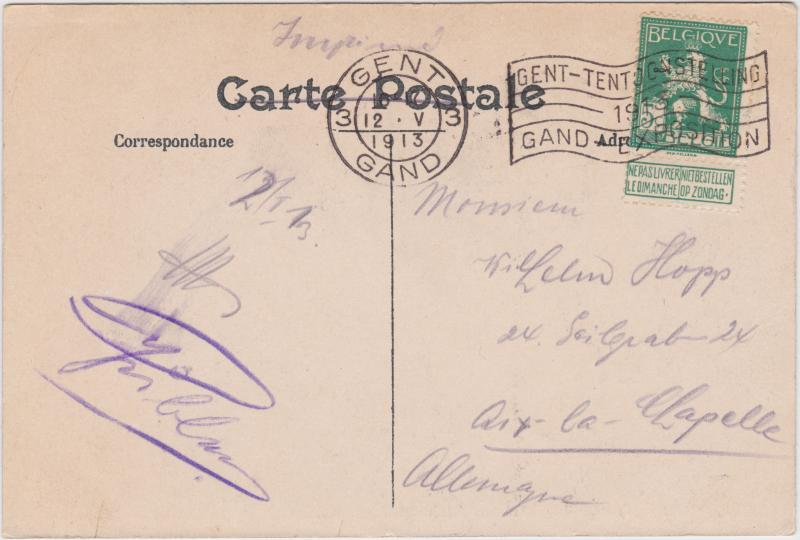 Imprimé
Carte Postale
Correspondance
GENT
3 3
12 · V
1913
GAND
GENT-TENTOONSTELLING
1913
GAND-EXPOSITION
BELGIQUE
NE PAS LIVRER NIET BESTELLEN
LE DIMANCHE OP ZONDAG.
12/V 13.
Monsieur
Wilhelm Hopp
24. Seilgraben 24
Aix-la-Chapelle
Allemagne